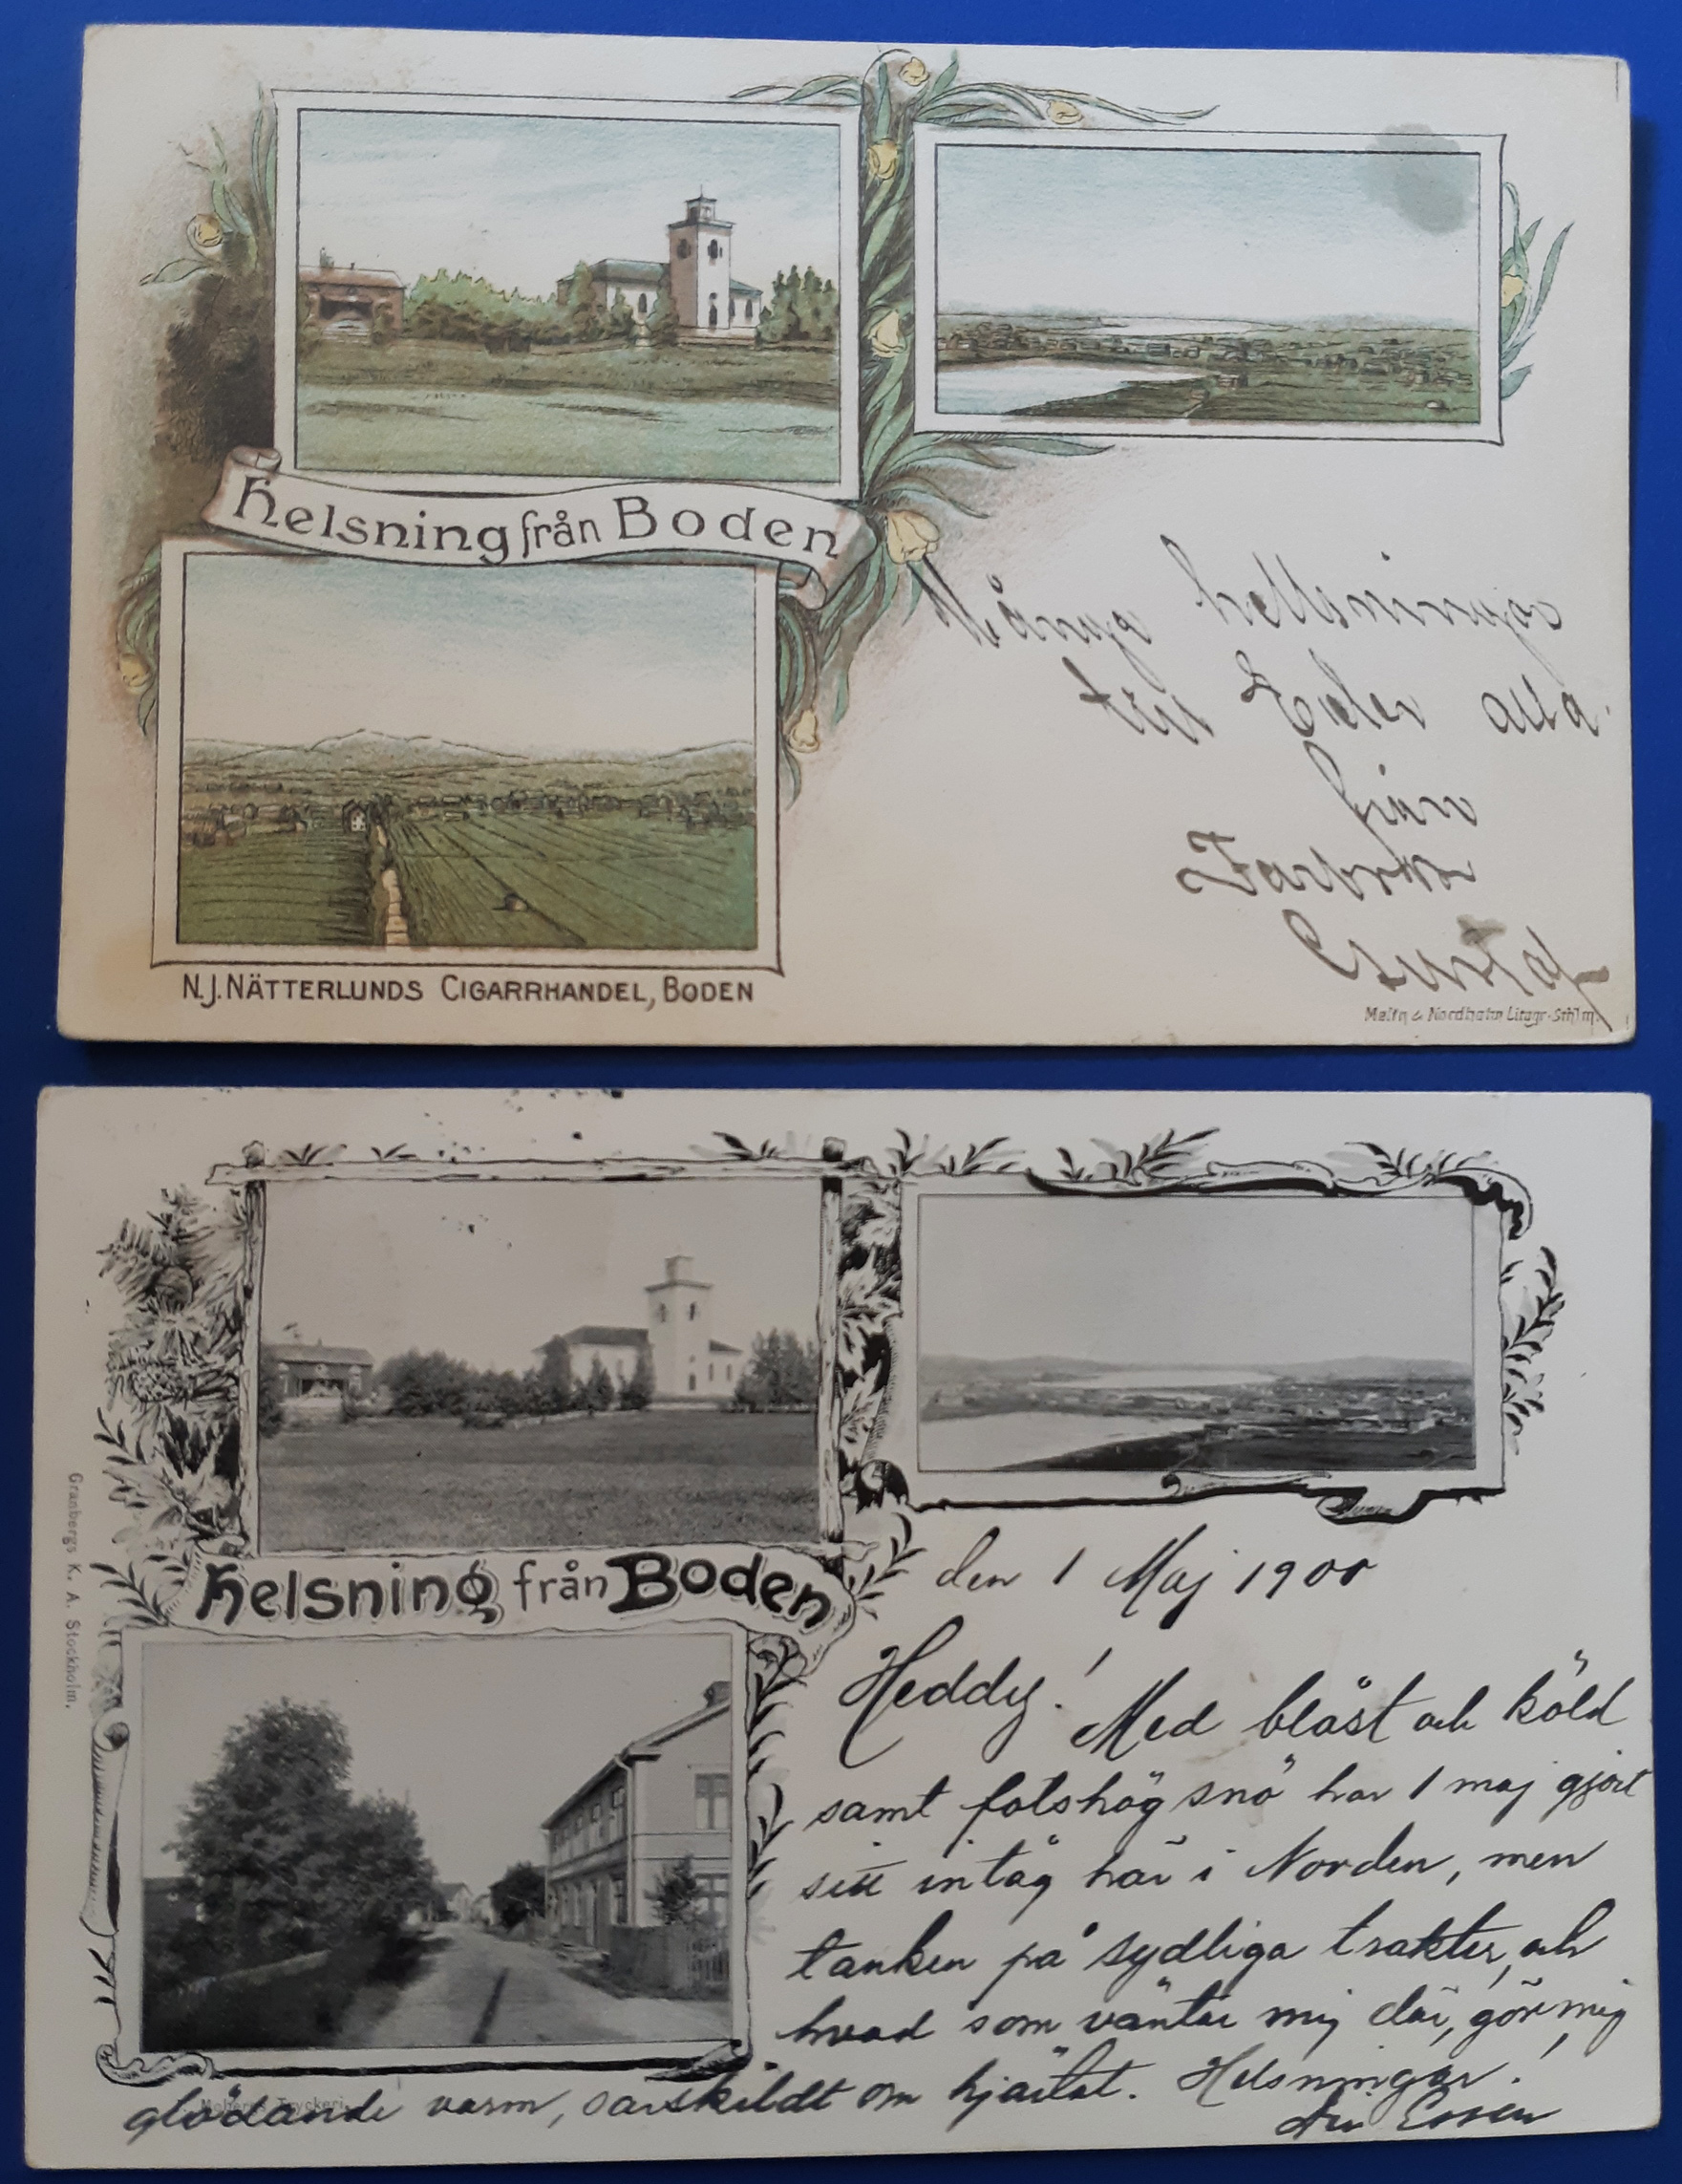 Helsning från Boden
Många hellsningar
till Eder alla
från
Farbror
Gustaf
N.J. NÄTTERLUNDS CIGARRHANDEL, BODEN
Malin & Nordholm Litogr. Sthlm.
Granbergs K. A. Stockholm.
Helsning från Boden
den 1 Maj 1900
Heddy! Med blåst och köld
samt fotshög snö har 1 maj gjort
sitt intåg här i Norden, men
tanken på sydliga trakter, och
hvad som väntar mig där, gör mig
glödande varm, särskildt om hjärtat. Helsningar!
Essen
Tryckeri